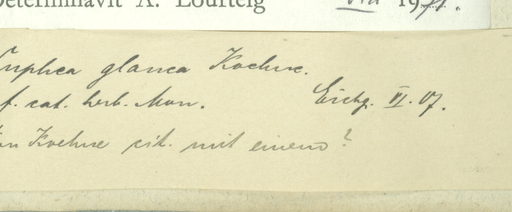 Determinavit A. Lourteig VIII 1971.
Cuphea glauca Koehne.
f. cat. herb. Mon. Eichg. VI. 07.
von Koehne cit. mit einem ?